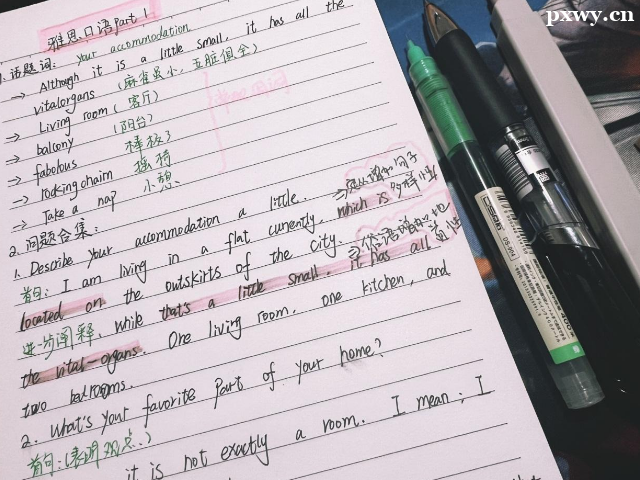 pxwy.cn
雅思口语part 1
1. 话题词: your accommodation
→ Although it is a little small, it has all the
vitalorgans (麻雀虽小,五脏俱全)
→ Living room (客厅)
→ balcony (阳台)
→ fabolous 棒极了
→ rockingchairm 摇椅
→ Take a nap 小憩
2. 问题合集:
1. Describe your accommodation a little.
首句: I am living in a flat currently, which is
located on the outskirts of the city.
进一步阐释, while that's a little small. it has all
the vital-organs. One living room, one kitchen, and
two bedrooms.
2. What's your favorite part of your home?
首句:(表明观点.)
it is not exactly a room. I mean, I